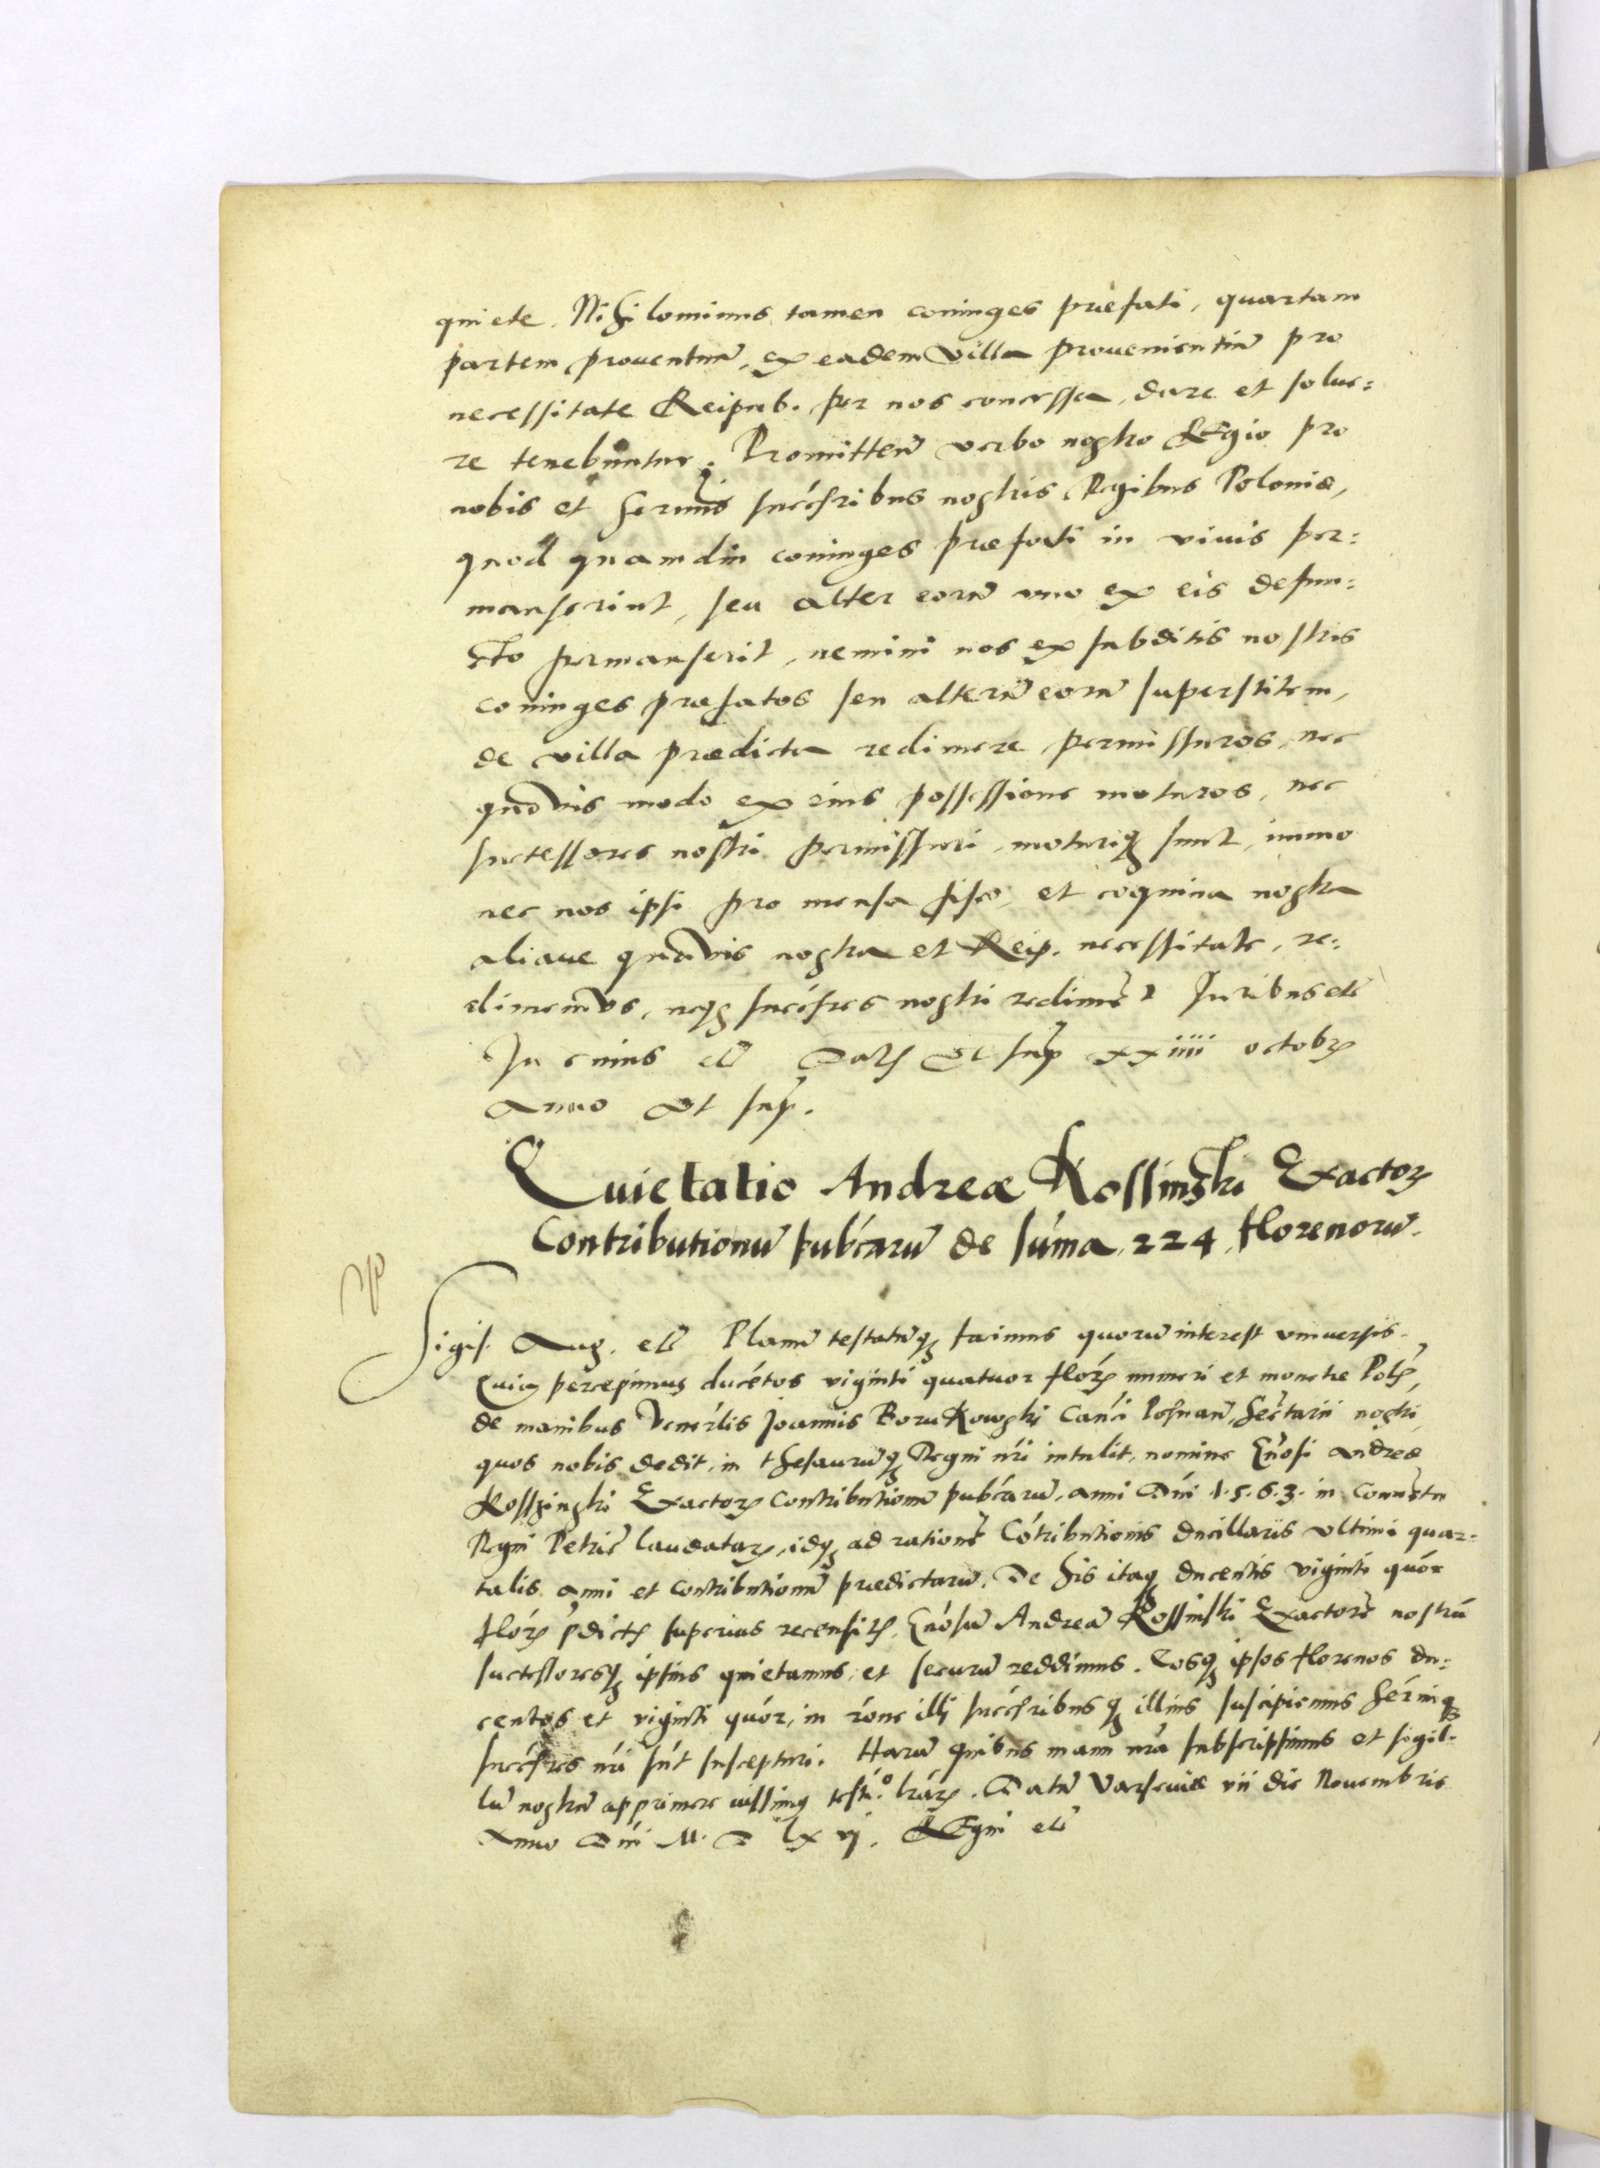 quiete. Nihilominus tamen coniuges præfati, quartam
partem prouentuũ, ex eadem villa prouenientiũ pro
necessitate Reipub. per nos concessa, dare et solue:
re tenebuntur. Promittem̃ verbo nostro Regio pro
nobis et Sermis succ̃ribus nostris Regibus Poloniæ,
quod quamdiu coniuges præfati in viuis per:
manserint, seu alter eorũ vno ex eis defun:
cto permanserit, nemini nos ex subditis nostris
coniuges præfatos seu alterũ eorũ superstitem,
de villa prædicta redimere permissuros, nec
quouis modo ex eius possessione moturos, nec
successores nostri permissuri, moturiq; sunt, immo
nec nos ipsi pro mensa fisco, et coquina nostra
aliaue quauis nostra et Reip. necessitate, re:
dimemus, neq; succ̃res nostri rediment Juribus etc̃
In cuius etc̃ Dat; vt sup̃ xxiiii octobr;
Anno vt sup̃.
Quietatio Andreæ Kossinski Exactor;
Contributionũ pub́carũ de súma 224 florenorũ.
Sigis. Aug. etc̃ Planũ testatũq; facimus quorũ interest vniuersis.
Quia percepimus ducẽtos viginti quatuor flor; numeri et monetæ Pol;,
de manibus Vener̃lis Joannis Borukowski Can̄ci Posnan̄, Secr̃tarii nostri,
quos nobis dedit, in thesaurũq; Regni nr̃i intulit, nomine Gñosi Andreæ
Kosszinski Exactor; contributionũ pub́carũ, anni Dñi 1.5.6.3. in Conuẽtu
Regni Petric̃ laudatar;, idq; ad rationẽ Cõtributionis ducillaris vltimi quar-
talis anni et contributionũ prædictarũ. De his itaq; ducentis viginti quór
flór; p̃dict; superius recensit;, Gñosũ Andreã Kossinski Exactorẽ nostrũ
successoresq; ipsius quietamus, et securũ reddimus. Eosq; ipsos florenos du:
centos et viginti quór, in rõne illi succ̃ribusq; illius suscipiemus Sér̃niq;
succ̃res nr̃i sũt suscepturi. Harũ quibus manu nrã subscripsimus et sigil-
lũ nostrũ apprimere iussimus testi.º lrãr;. Datũ Varseuiæ vii die Nouembris
Anno Dñi M. D lx vj. Regni etc̃